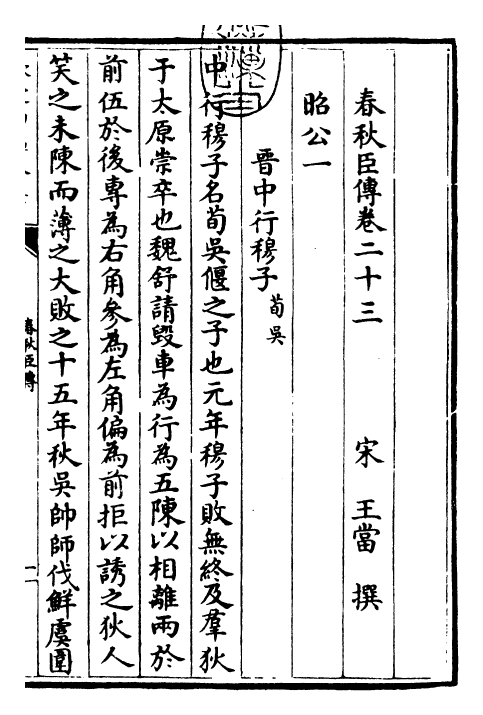 春秋臣傳卷二十三　宋　王當　撰
昭公一
晉中行穆子荀吳
中行穆子名荀吳偃之子也元年穆子敗無終及羣狄
于太原崇卒也魏舒請毀車為行為五陳以相離兩於
前伍於後專為右角參為左角偏為前拒以誘之狄人
笑之未陳而薄之大敗之十五年秋吳帥師伐鮮虞圍
春秋臣傳